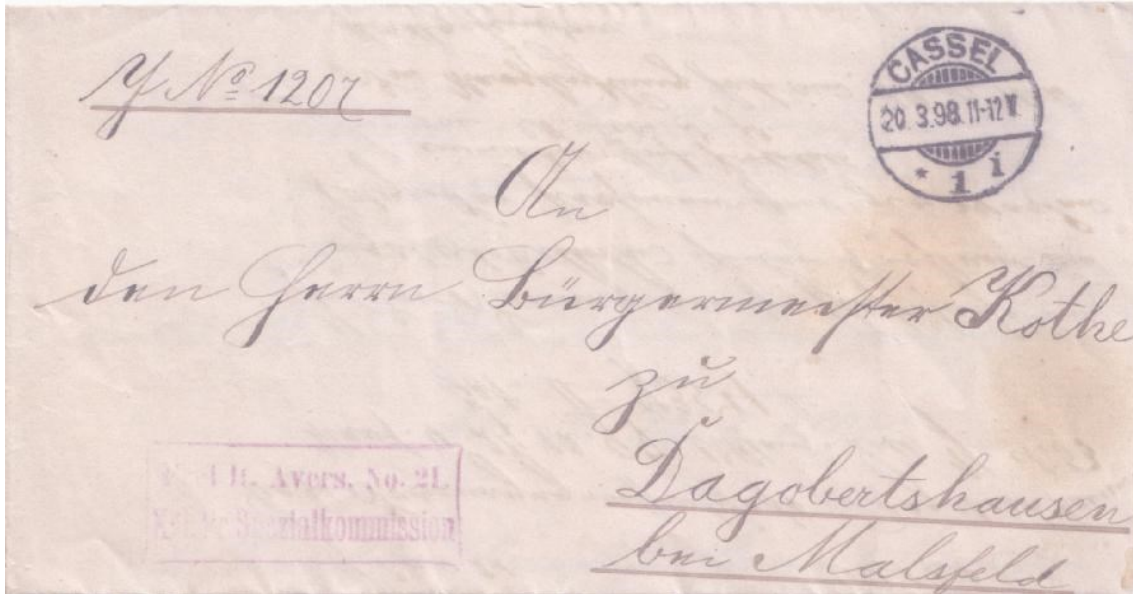 J No 1207
CASSEL
20.3.98.11-12V.
* 1 i
An
den Herrn Bürgermeister Kothe
zu
Dagobertshausen
bei Malsfeld
lt. Avers. No. 21.
Spezialkommission